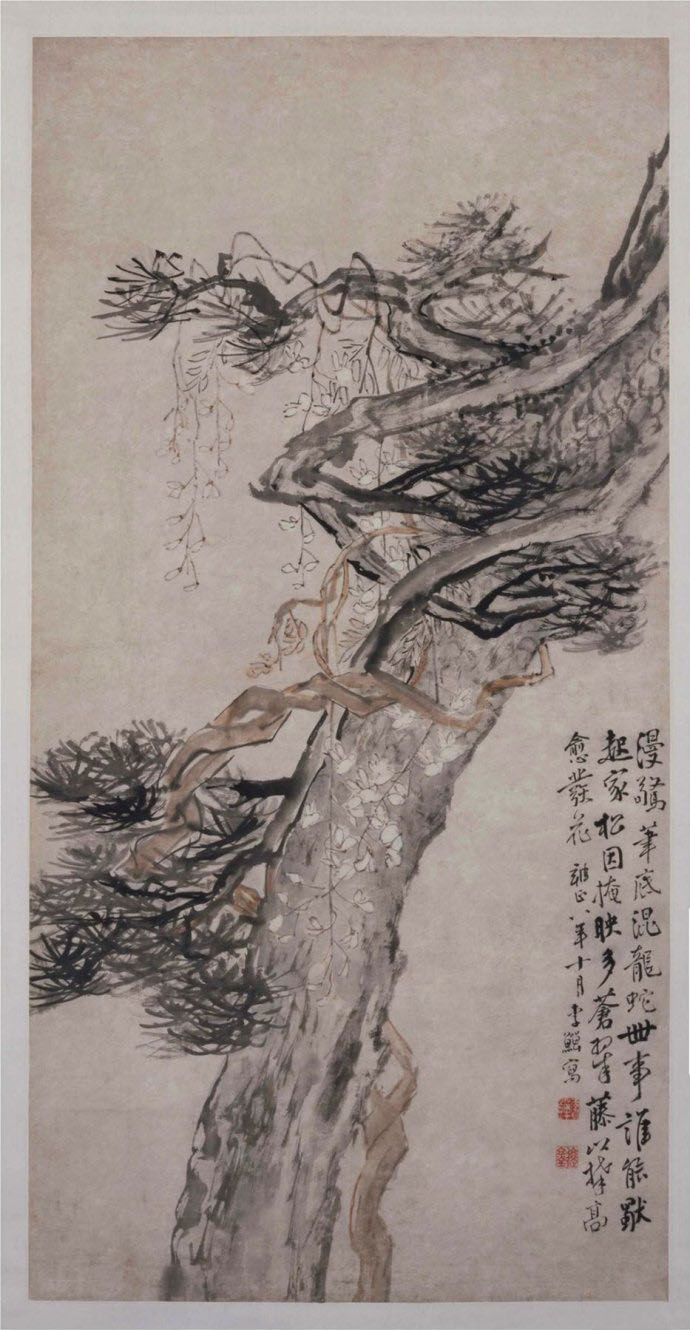 漫驚筆底混龍蛇世事誰能
起家松因掩映多蒼翠藤以高
愈發花 雍正八年十月李鱓寫